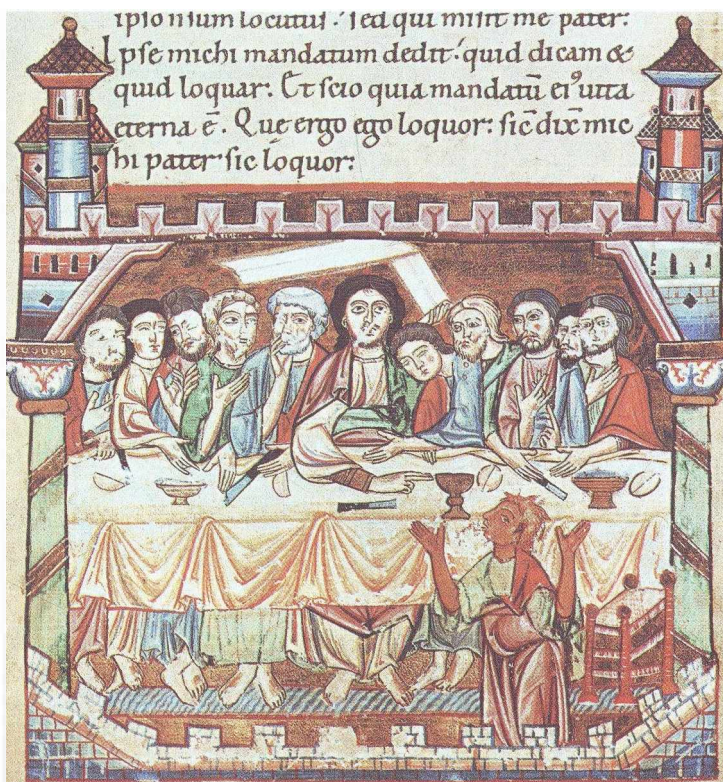 ipso n̄ sum locutus. Sed qui misit me pater:
Ipse michi mandatum dedit: quid dicam &
quid loquar. Et scio quia mandatū eiꝰ uita
eterna ē. Que ergo ego loquor: sic̄ dix̄ mic
hi pater sic loquor: